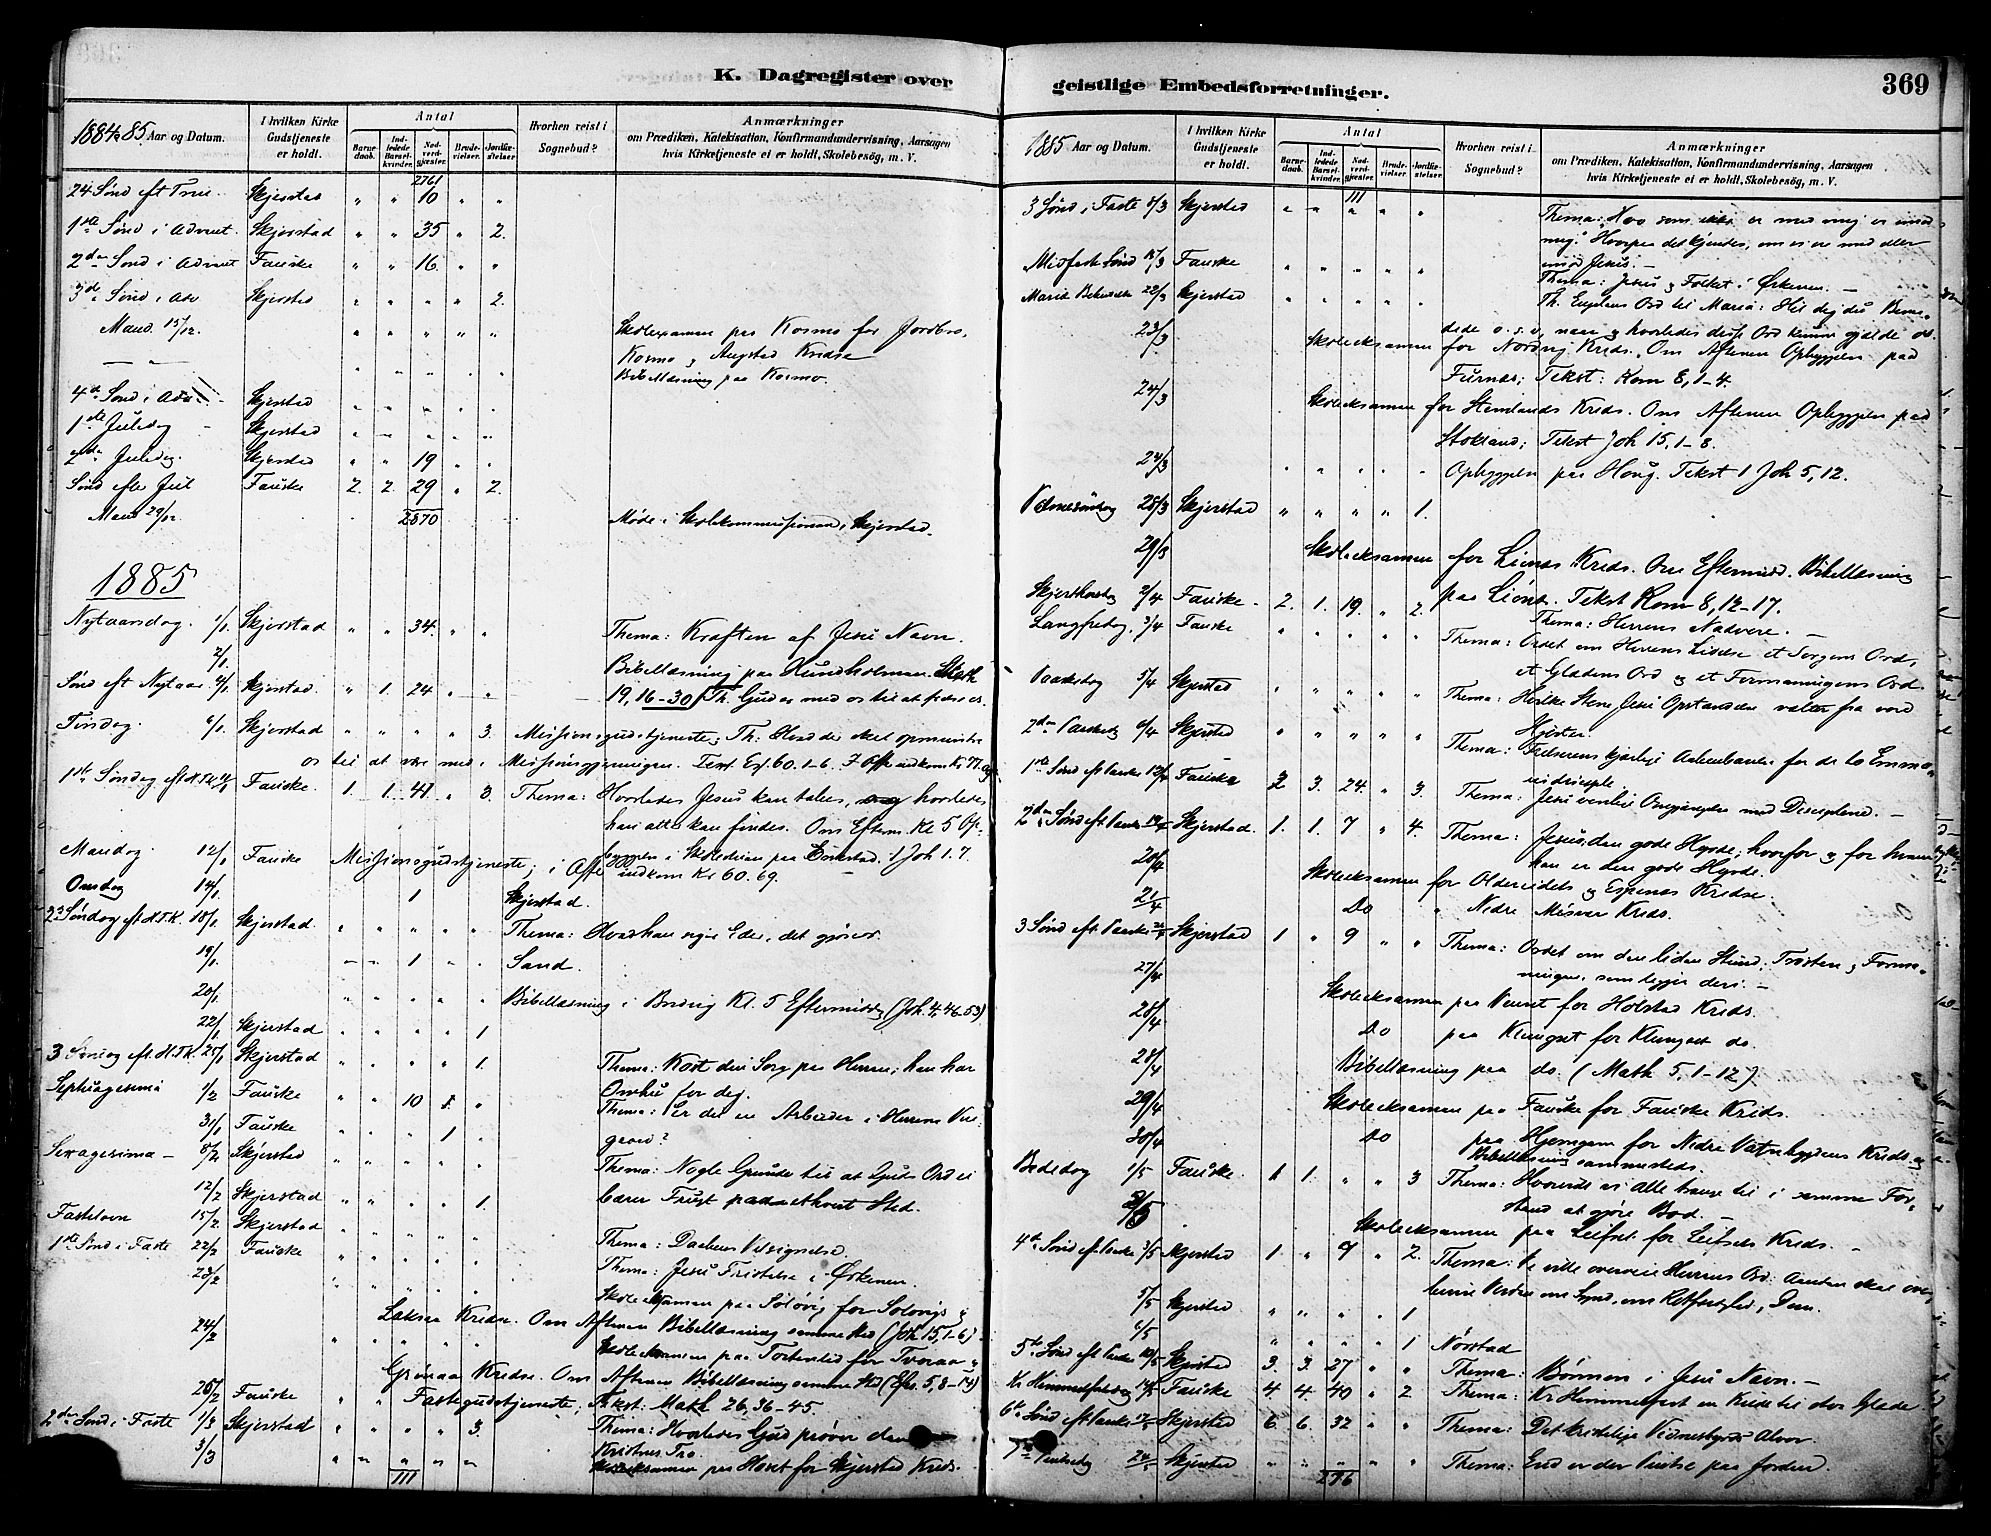 K. Dagregister over
1884 85. Aar og Datum.
I hvilken Kirke Gudstjeneste er holdt.
Antal
Barnedaab.
Indledede Barselkvinder.
Nadverdgjæster.
Brudevielser.
Jordfæstelser.
Hvorhen reist i Sognebud?
Anmærkninger
om Prædiken, Katekisation, Konfirmandundervisning, Aarsagen
hvis Kirketjeneste ei er holdt, Skolebesög, m. V.
2761
24 Sønd eft Trin. Skjerstad " " 10 " "
1ste Sønd i Advent. Skjerstad " " 35 " 2.
2den Sønd i Advent Fauske " " 16. " "
3de Sønd i Adv Skjerstad " " " " 2.
Mand. 15/12. " " " " " Skoleexamen paa Kosmo for Jordbro,
Kosmo og Augstad Kredse
— " — " " " " " Bibellæsning paa Kosmo.
4de Sønd i Adv. Skjerstad " " " " "
1ste Juledag Skjerstad " " " " "
2den Juledag. Skjerstad " " 19 " "
Sønd efter Jul Fauske 2. 2. 29 " 2.
Mand 29/12 2870 Møde i Skolekommissionen i Skjerstad.
1885
Nytaarsdag. 1/1. Skjerstad " " 34. " " Thema: Kraften af Jesu Navn.
2/1. Bibellæsning paa Hundholmen. Math
Sønd eft Nytaar 4/1 Skjerstad. " 1. 24 " " 19, 16-30 Th. Gud er med os til at frelse os.
Tirsdag. 6/1. Skjerstad " " " " 3. Missionsgudstjeneste; Th: Hvad der skal opmuntre
os til at være med i Missionsgjerningen. Text Es. 60. 1-6. I Offer indkom Kr 77.
1ste Søndag eft H.T.K. 11/1 Fauske. 1. 1. 41 " 3. Thema: Hvorledes Jesus kan tabes, og hvorledes
han atter kan findes. Om Efterm. Kl 5 Op-
Mandag. 12/1 Fauske Missionsgudstjeneste; i Offer indkom Kr 60.69.
byggelse i Skolestuen paa Erikstad. 1 Joh 1.7.
Onsdag 14/1. 1 Skjerstad.
2den Søndag eft H.T.K. 18/1 Skjerstad. " " " " " Thema: Hvad han siger Eder, det gjører.
19/1. " " 1 " " Sand.
20/1 " " " " " Bibellæsning i Bredvig Kl. 5 Eftermiddag (Joh. 4, 46-53)
22/1 Skjerstad " " " " 1
3 Søndag eft. H.T.K. 25/1 Skjerstad " " " " 1. Thema: Kast din Sorg paa Herren; han har
Omhu for dig.
Septuagesima 1/2 Fauske " " 10 " Thema: Er du en Arbeider i Herrens Vin-
gaard?
31/1 Fauske " " " 1 "
Sexagesima — 8/2 Skjerstad " " " " " Thema: Nogle Grunde til at Guds Ord ei
12/2 Skjerstad " " " " 1. bærer Frugt paa ethvert Sted.
Fastelavn 15/2. Skjerstad " " " " " Thema: Daabens Velsignelse.
1ste Sønd i Faste 22/2 Fauske " " " " " Thema: Jesu Fristelse i Ørkenen.
23/2 " " " " " Skoleexamen paa Solovig for Solovigs og
Laksaa Kredse. Om Aftenen Bibellæsning samme Sted (Joh. 15, 1-6)
24/2 " " " " " Skoleexamen paa Tortenlid for Tveraa og
Grønaa Kredse. Om Aftenen Bibellæsning samme Sted (Efs. 5, 8-14)
26/2 Fauske " " Fastegudstjeneste; Tekst. Math 26. 36-45.
2den Sønd i Faste 1/3 Skjerstad " " " " 3. Thema: Hvorledes Gud prøver den
Kristnes Tro.
3/3 " " " " " Skoleexamen paa Hoset for Skjerstad Kreds.
111
geistlige Embedsforretninger.
369
1885 Aar og Datum.
I hvilken Kirke Gudstjeneste er holdt.
Antal
Barnedaab.
Indledede Barselkvinder.
Nadverdgjæster.
Brudevielser.
Jordfæstelser.
Hvorhen reist i Sognebud?
Anmærkninger
om Prædiken, Katekisation, Konfirmandundervisning, Aarsagen
hvis Kirketjeneste ei er holdt, Skolebesög, m. V.
111
3 Sønd i Faste 8/3 Skjerstad " " " " " Thema: "Hvo som ikke er med mig er imod
mig." Hvorpaa det kjendes, om vi er med eller
imod Jesus. —
Midfaste Sønd 15/3 Fauske " " " " " Thema: Jesus og Folket i Ørkenen. —
Mariæ Bebudelse 22/3 Skjerstad " " " " " Th. Engelens Ord til Maria: Hil dig du Bena-
dede o.s.v, naar og hvorledes disse Ord kunne gjælde os.
23/3 Skoleeksamen for Nordvig Kreds. Om Aftenen Opbyggelse paa
Furnæs; Tekst: Rom 8, 1-4.
24/3 Skoleeksamen for Stemlands Kreds. Om Aftenen Opbyggelse paa
Stokland; Tekst Joh 15, 1-8.
24/3 " " " " " Opbyggelse paa Houg. Tekst 1 Joh 5, 12.
Palmesøndag 28/3 Skjerstad " " " " 1.
29/3 Skoleeksamen for Lienes Kreds. Om Eftermidd. Bibellæsning
paa Liene. Tekst Rom 8, 12-17.
Skjærthorsdag 2/4 Fauske. 2. 1. 19. " 2. Thema: Herrens Nadvere. —
Langfredag. 3/4 Fauske " " " " " Thema: Ordet om Herrens Lidelse et Sorgens Ord,
et Glædens Ord og et Formaningens Ord.
Paaskedag 5/4 Skjerstad " " " " " Thema: Hvilke Stene Jesu Opstandelse vælter fra vore
Hjerter.
2den Paaskedag 6/4 Skjerstad " " " " " Thema: Frelserens kjærlige Aabenbarelse for de to Emmaus
disciple
1ste Sønd eft Paaske 12/4 Fauske 2 3. 24. " 3. Thema: Jesu venlige Omgjængelse med Disciplene. —
2den Sønd eft Paaske 19/4 Skjerstad. 1. 1. 7 " 4. Thema: Jesus, den gode Hyrde; hvorfor og for hvem
han er den gode Hyrde.
20/4 Skoleeksamen for Oldereidets og Espenes Kredse.
21/4 Do " Nedre Misvær Kreds.
3 Sønd eft Paaske 26/4 Skjerstad 1 " 9 " " Thema: Ordet om den liden Stund; Trøsten og Forma-
ningen, som ligger deri. —
27/4 Skoleeksamen paa Venset for Holstad Kreds.
28/4 Do paa Klungset for Klungset do.
28/4 Bibellæsning paa do. (Math 5, 1-12).
29/4 Skoleeksamen paa Fauske for Fauske Kreds.
30/4 Do paa Hjemgam for Nedre Vatnbygdens Kreds og
Bibellæsning sammesteds.
Bededag 1/5 Fauske. 1 1. " " 3 Thema: Hvorvidt vi Alle trænge til i samme For-
stand at gjøre Bod. —
2/5 Skoleeksamen paa Leifset for Leifsets Kreds. —
4de Sønd eft Paaske 3/5 Skjerstad 1. " 9 " 2. Thema: Vi ville overveie Herrens Ord: Aanden skal over-
bevise Verden om Synd, om Retfærdighed, Dom.
5/5 Skjerstad " " " " 1
6/5 " " " " 1 Nørstad
5te Sønd eft Paaske 10/5 Skjerstad 3. 3. 27 " " Thema: Bønnen i Jesu Navn. —
Kr Himmelfartsdag 14/5 Fauske 4. 4. 40 " 2 Thema: Kr Himmelfart en Kilde til stor Glæde
6te Sønd eft Paaske 17/5 Skjerstad 6. 6. 32 " " Thema: Det kristelige Vidnesbyrds Alvor.
1ste Pintsedag 24/5 Skjerstad " " " " " Thema: End er der Pintse paa Jorden.
296